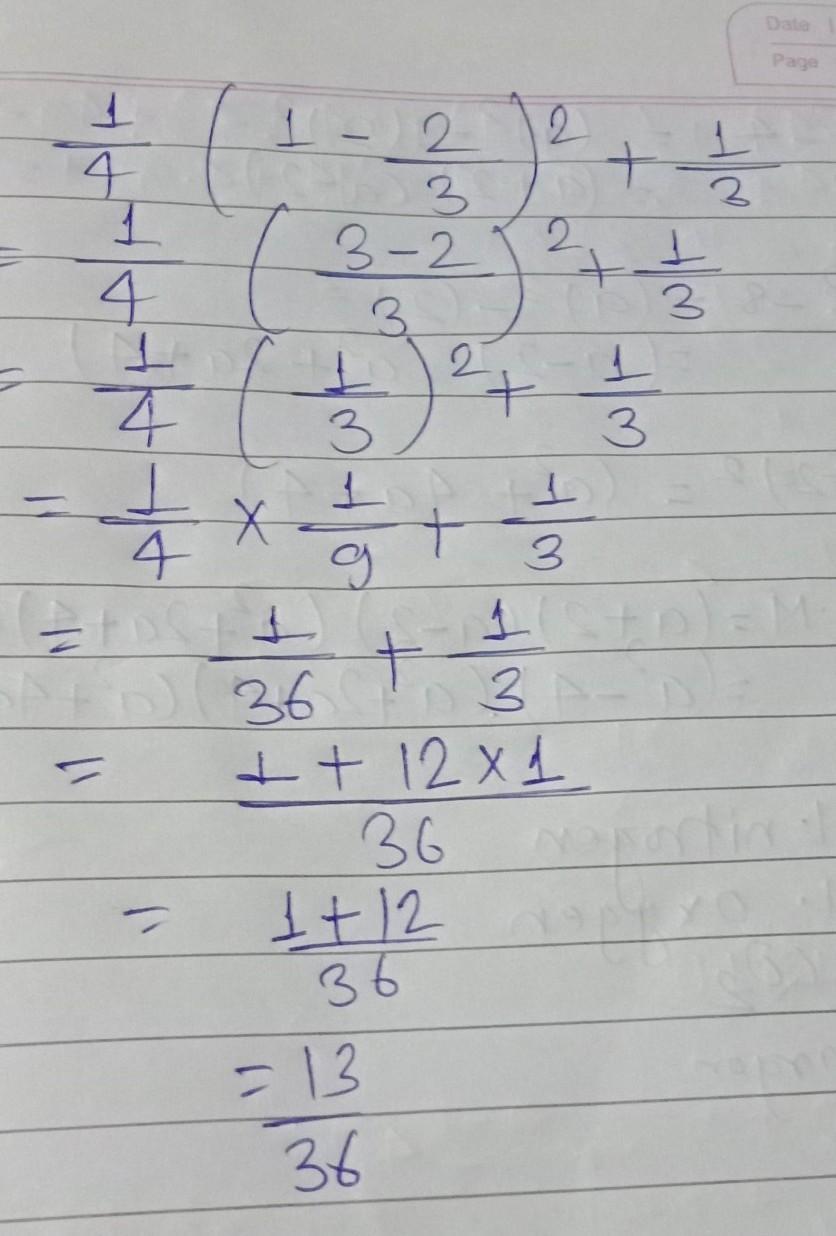 Date
Page
1/4 (1 - 2/3)² + 1/3
= 1/4 (3-2/3)² + 1/3
= 1/4 (1/3)² + 1/3
= 1/4 × 1/9 + 1/3
= 1/36 + 1/3
= 1 + 12 × 1/36
= 1 + 12/36
= 13/36